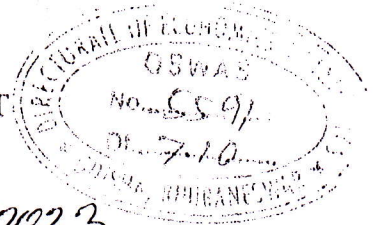 DIRECTORATE OF ECONOMICS
OSWAS
No. 5591
Dt. 7.10
ODISHA, BHUBANESWAR
2023